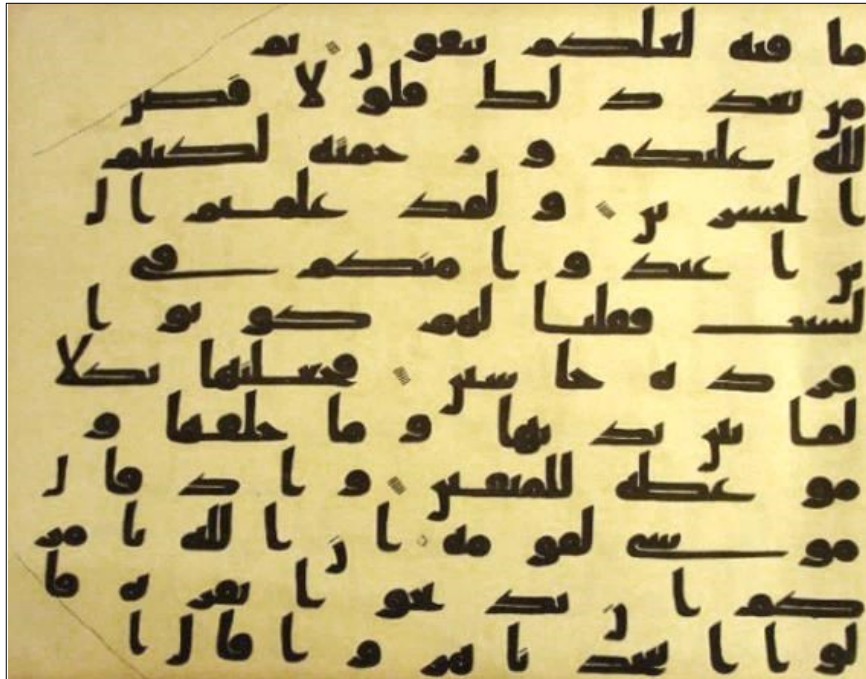 ما فيه لعلكم تتقون ثم
من بعد ذلك فلولا فضل
لله عليكم و رحمته لكنتم
الخسرين ولقد علمتم ال
ذين اعتدوا منكم في
لسبت فقلنا لهم كونوا
قردة خاسين فجعلنها نكلا
لما بين يديها وما خلفها و
موعظة للمتقين واذ قال
موسى لقومه ان الله يامر
كم ان تذبحوا بقرة قا
لوا اتتخذنا هزوا قال ا